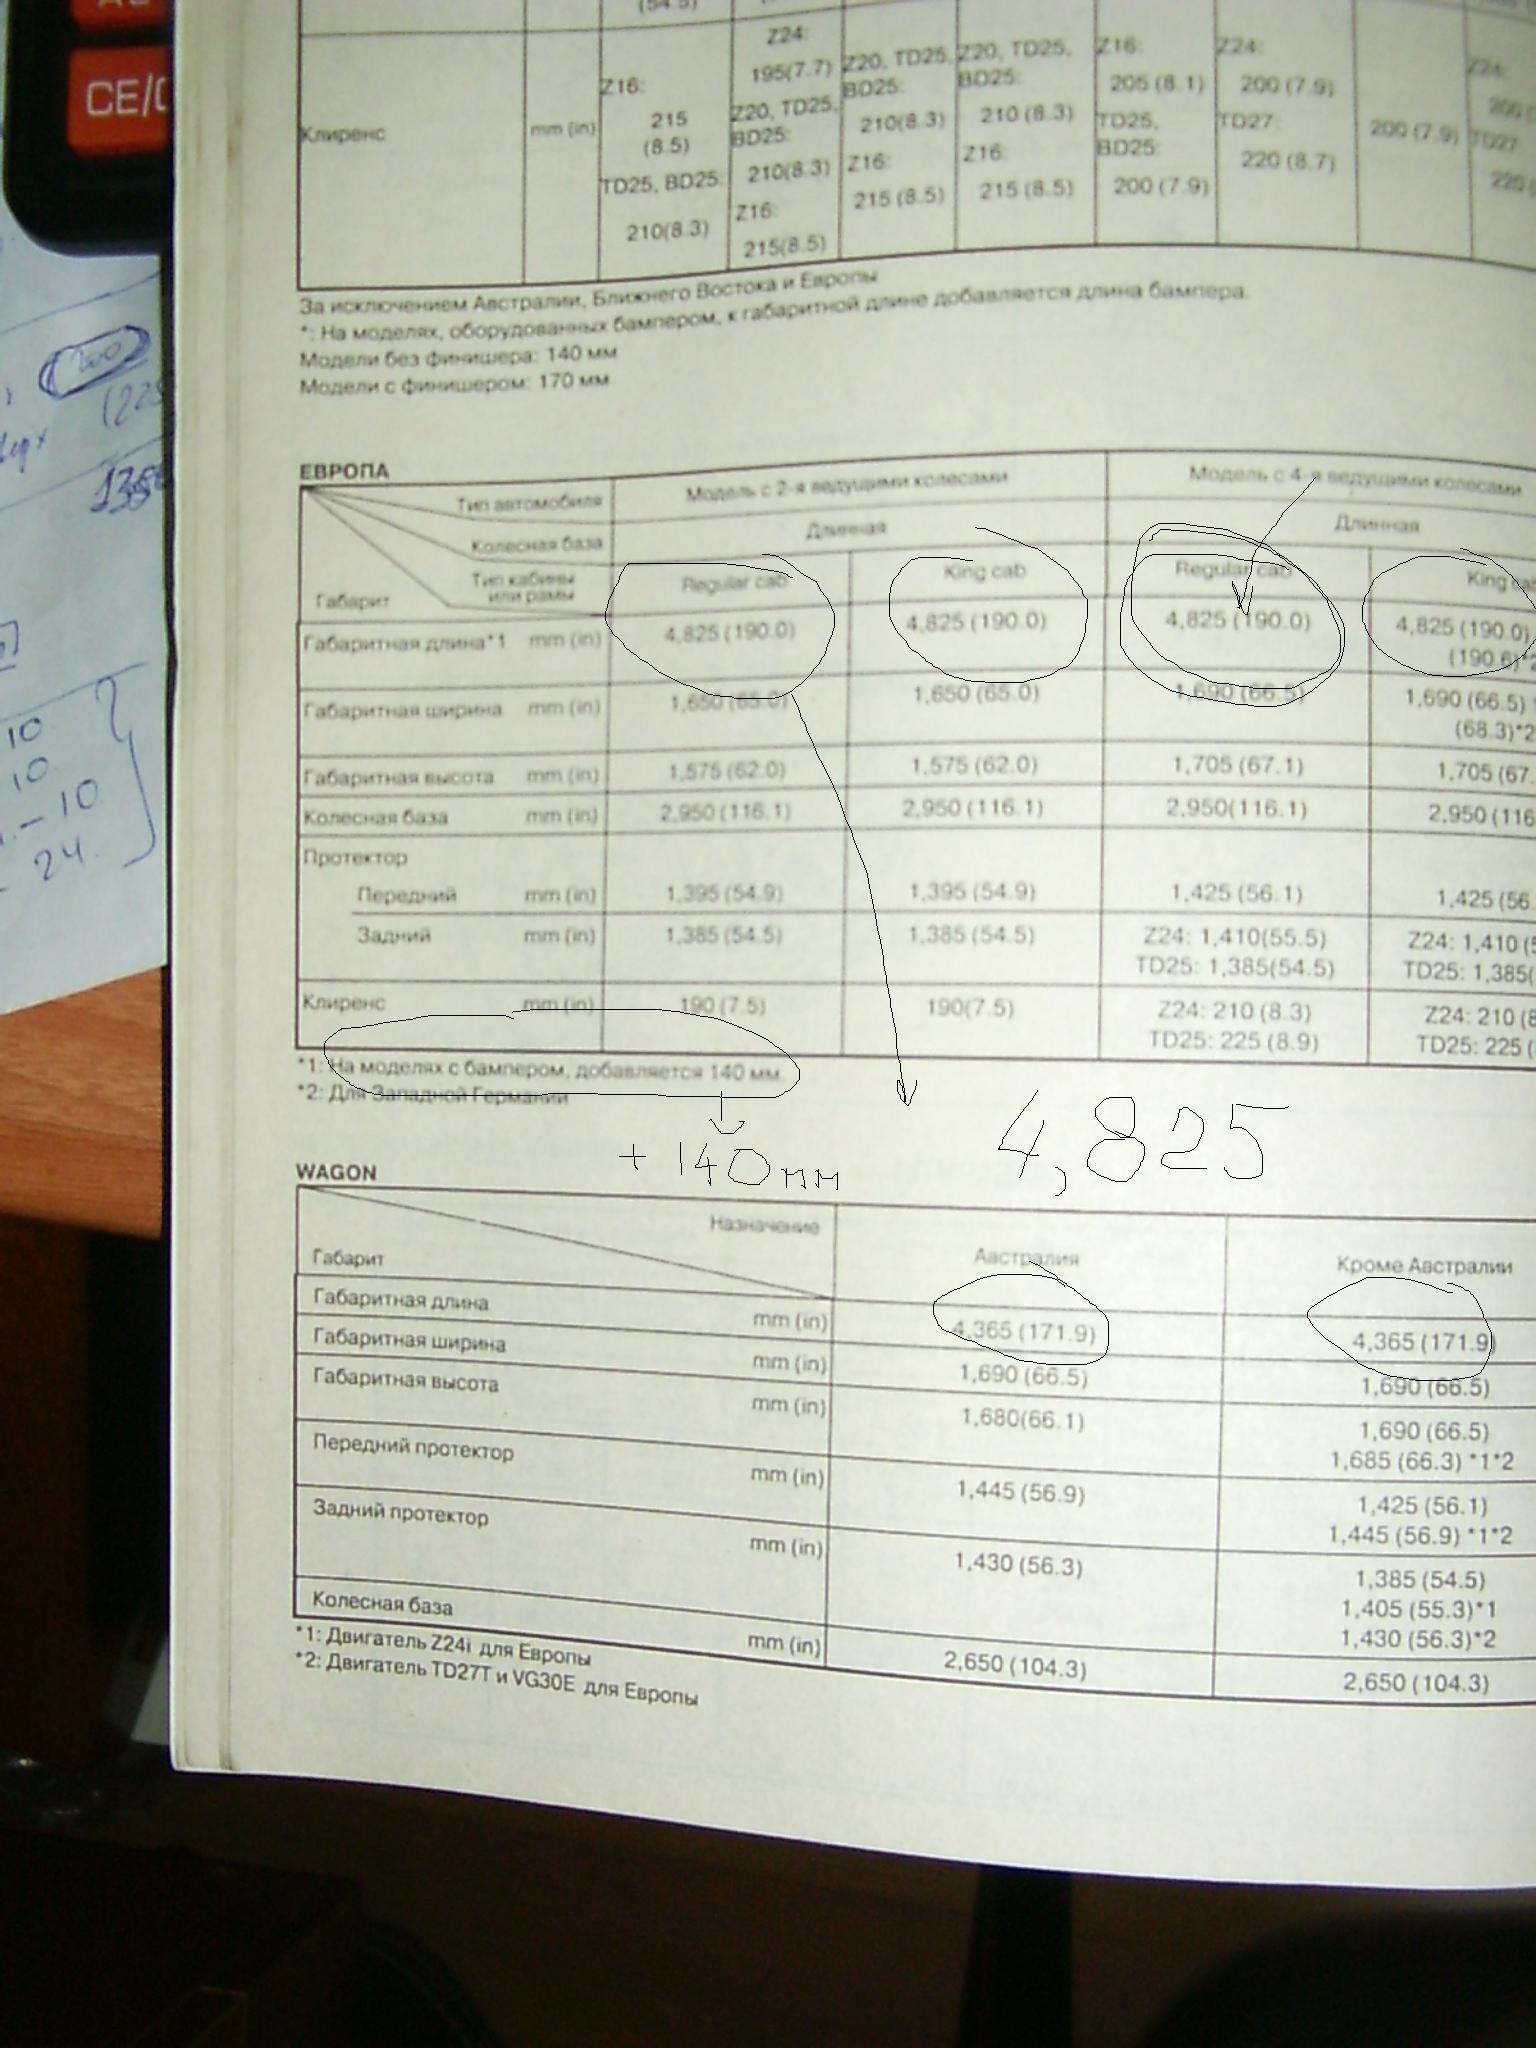 CE/C
Z24:
Z16: 195(7.7) Z20, TD25, Z20, TD25, Z16: Z24:
215 Z20, TD25, BD25: BD25: 205 (8.1) 200 (7.9)
Клиренс mm (in) (8.5) BD25: 210(8.3) 210 (8.3) TD25, TD27: 200 (7.9)
TD25, BD25: 210(8.3) Z16: Z16: BD25: 220 (8.7)
210(8.3) Z16: 215 (8.5) 215 (8.5) 200 (7.9)
215(8.5)
За исключением Австралии, Ближнего Востока и Европы
*: На моделях, оборудованных бампером, к габаритной длине добавляется длина бампера.
Модели без финишера: 140 мм
Модели с финишером: 170 мм
ЕВРОПА
Тип автомобиля Модель с 2-я ведущими колесами Модель с 4-я ведущими колесами
Колесная база Длинная Длинная
Тип кабины или рамы Regular cab King cab Regular cab King
Габарит
Габаритная длина*1 mm (in) 4,825 (190.0) 4,825 (190.0) 4,825 (190.0) 4,825 (190.0)
(190.6)*2
Габаритная ширина mm (in) 1,650 (65.0) 1,650 (65.0) 1,690 (66.5) 1,690 (66.5)
(68.3)*2
Габаритная высота mm (in) 1,575 (62.0) 1,575 (62.0) 1,705 (67.1) 1,705 (67.
Колесная база mm (in) 2,950 (116.1) 2,950 (116.1) 2,950(116.1) 2,950 (116
Протектор
Передний mm (in) 1,395 (54.9) 1,395 (54.9) 1,425 (56.1) 1,425 (56.
Задний mm (in) 1,385 (54.5) 1,385 (54.5) Z24: 1,410(55.5) Z24: 1,410 (5
TD25: 1,385(54.5) TD25: 1,385(
Клиренс mm (in) 190 (7.5) 190(7.5) Z24: 210 (8.3) Z24: 210 (8
TD25: 225 (8.9) TD25: 225 (
*1: На моделях с бампером, добавляется 140 мм.
*2: Для Западной Германии
+ 140 мм 4,825
WAGON
Назначение
Габарит Австралия Кроме Австралии
Габаритная длина mm (in) 4,365 (171.9) 4,365 (171.9)
Габаритная ширина mm (in) 1,690 (66.5) 1,690 (66.5)
Габаритная высота mm (in) 1,680(66.1) 1,690 (66.5)
1,685 (66.3) *1*2
Передний протектор mm (in) 1,445 (56.9) 1,425 (56.1)
1,445 (56.9) *1*2
Задний протектор mm (in) 1,430 (56.3) 1,385 (54.5)
1,405 (55.3)*1
1,430 (56.3)*2
Колесная база mm (in) 2,650 (104.3) 2,650 (104.3)
*1: Двигатель Z24i для Европы
*2: Двигатель TD27T и VG30E для Европы
10
10
- 10
24.